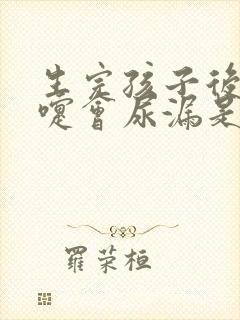 生完孩子後
嚏會尿漏是
羅荣桓